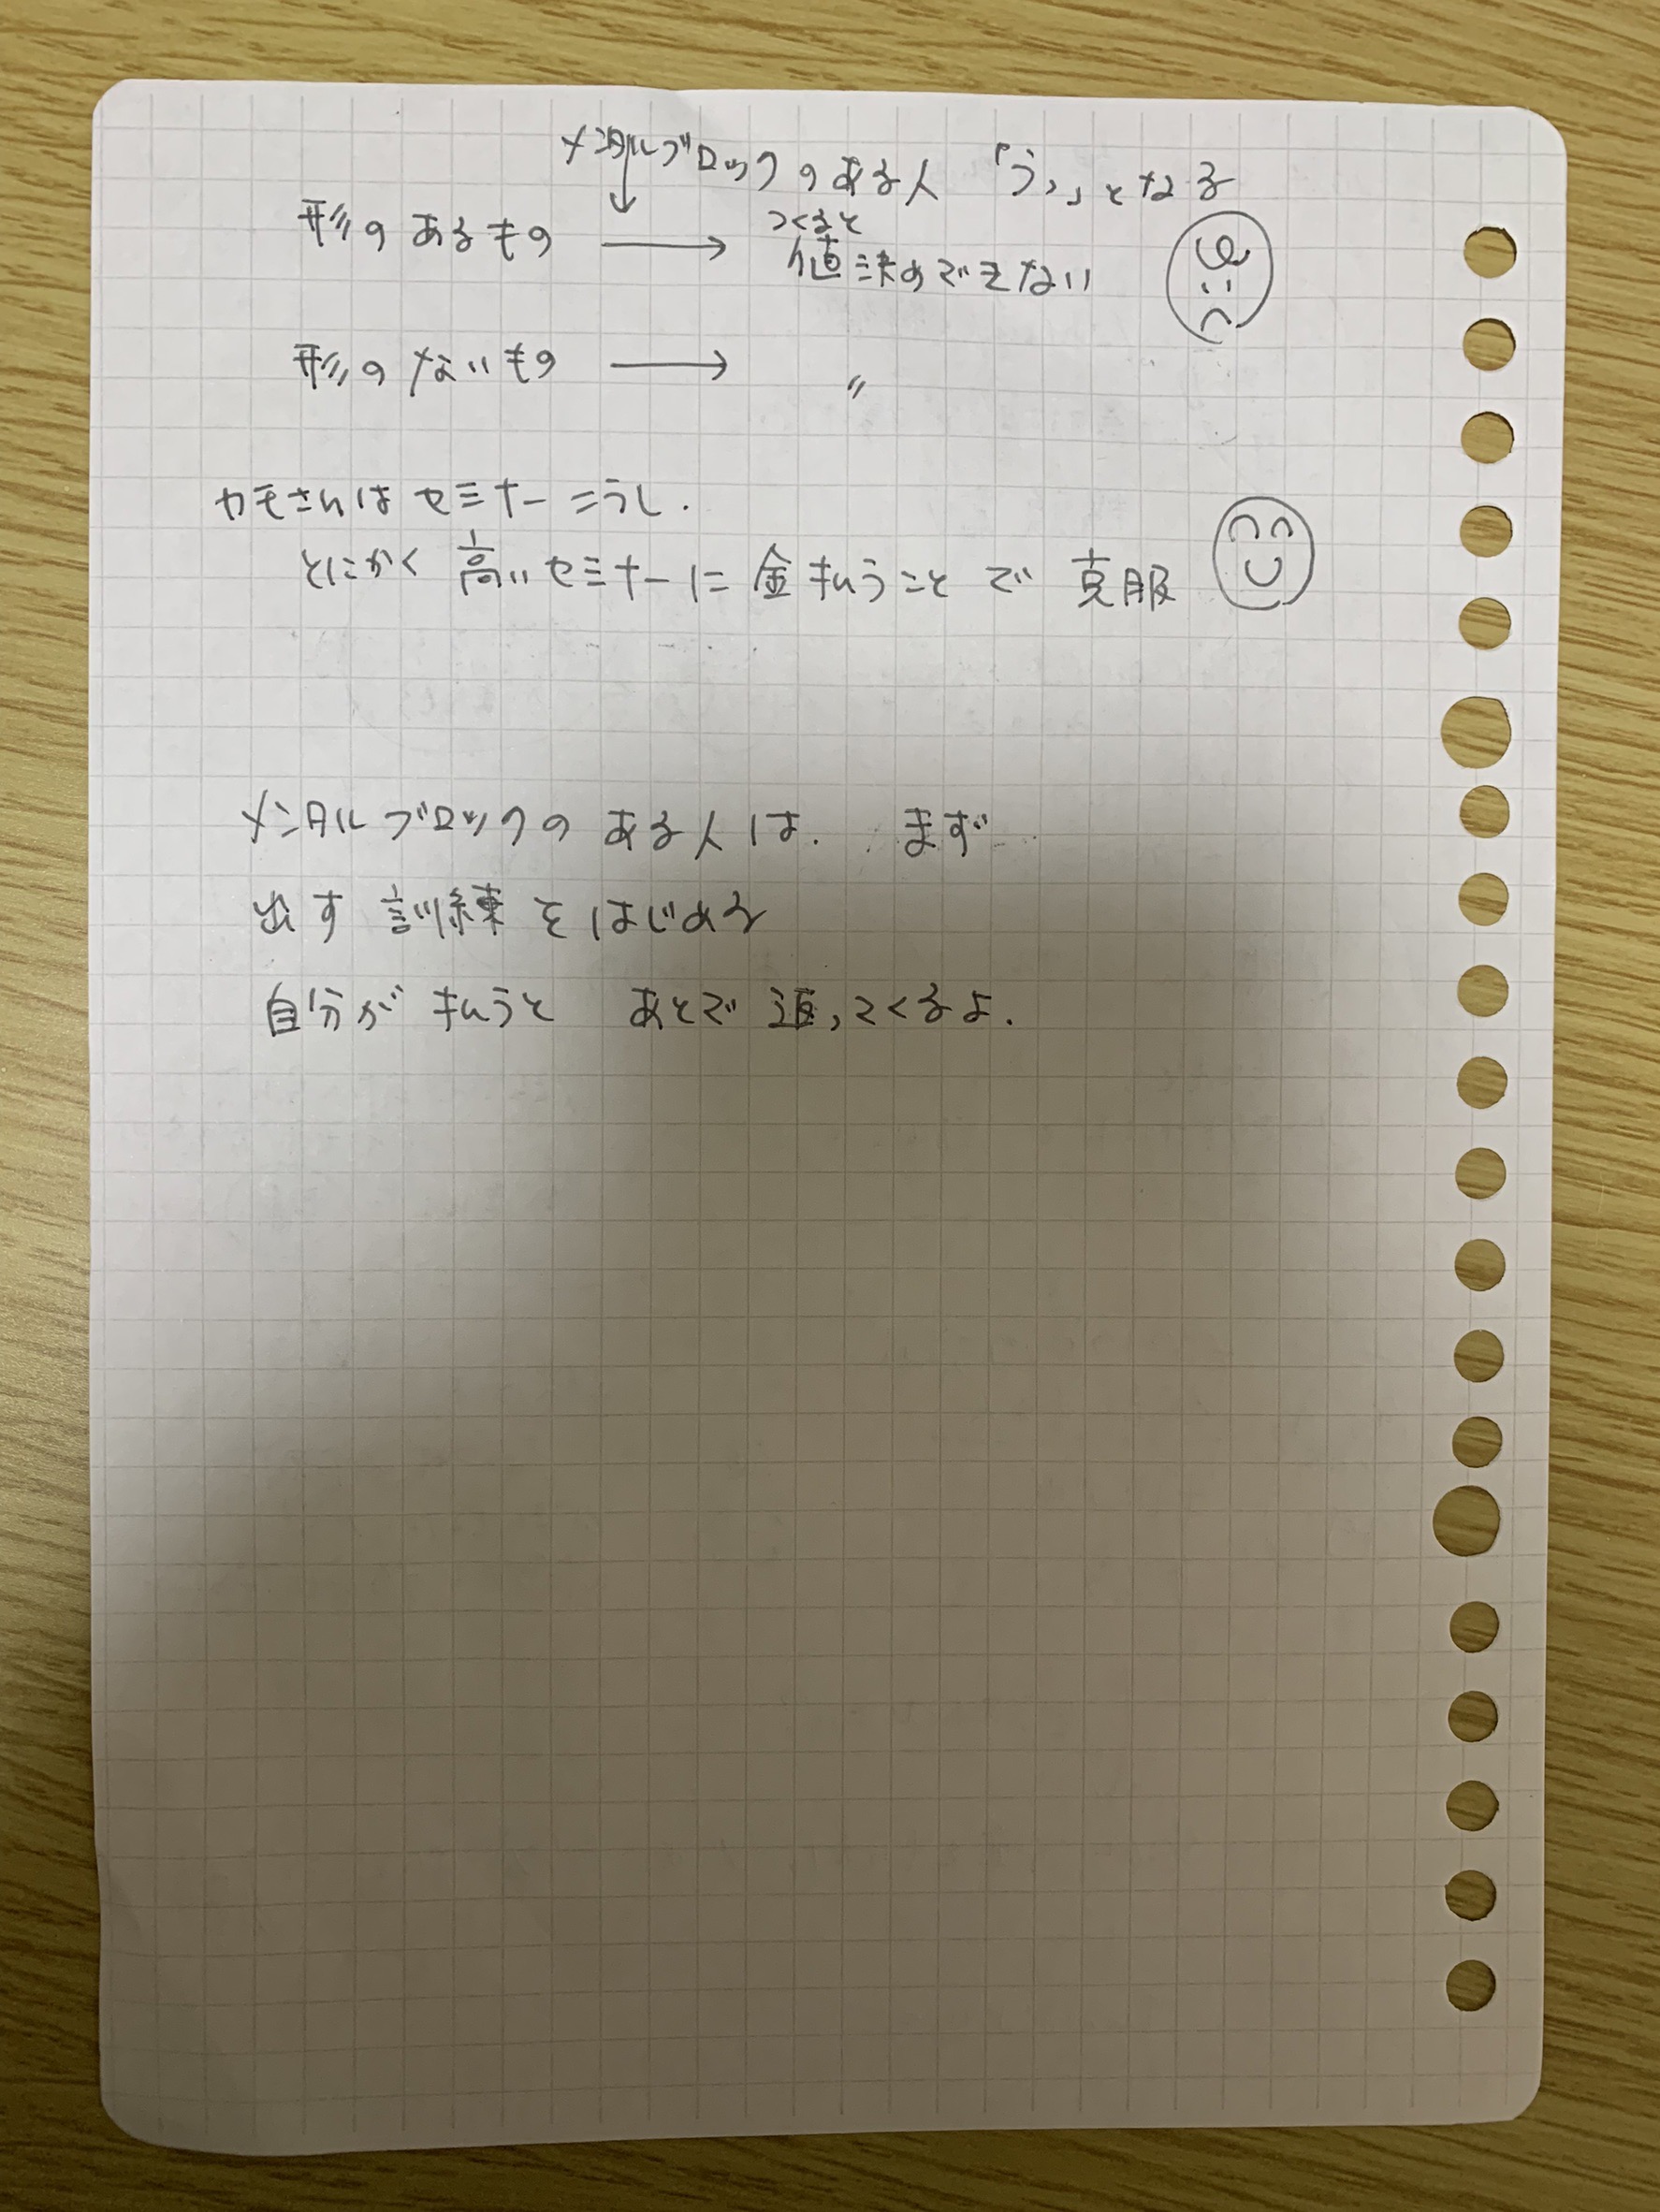 メンタルブロックのある人「うっ」となる
形のあるもの → つくると
値決めできない
形のないもの → 〃
カモさんはセミナーこうし.
とにかく高いセミナーに金払うことで克服
メンタルブロックのある人は. まず
出す訓練をはじめる
自分が払うと あとで返ってくるよ.